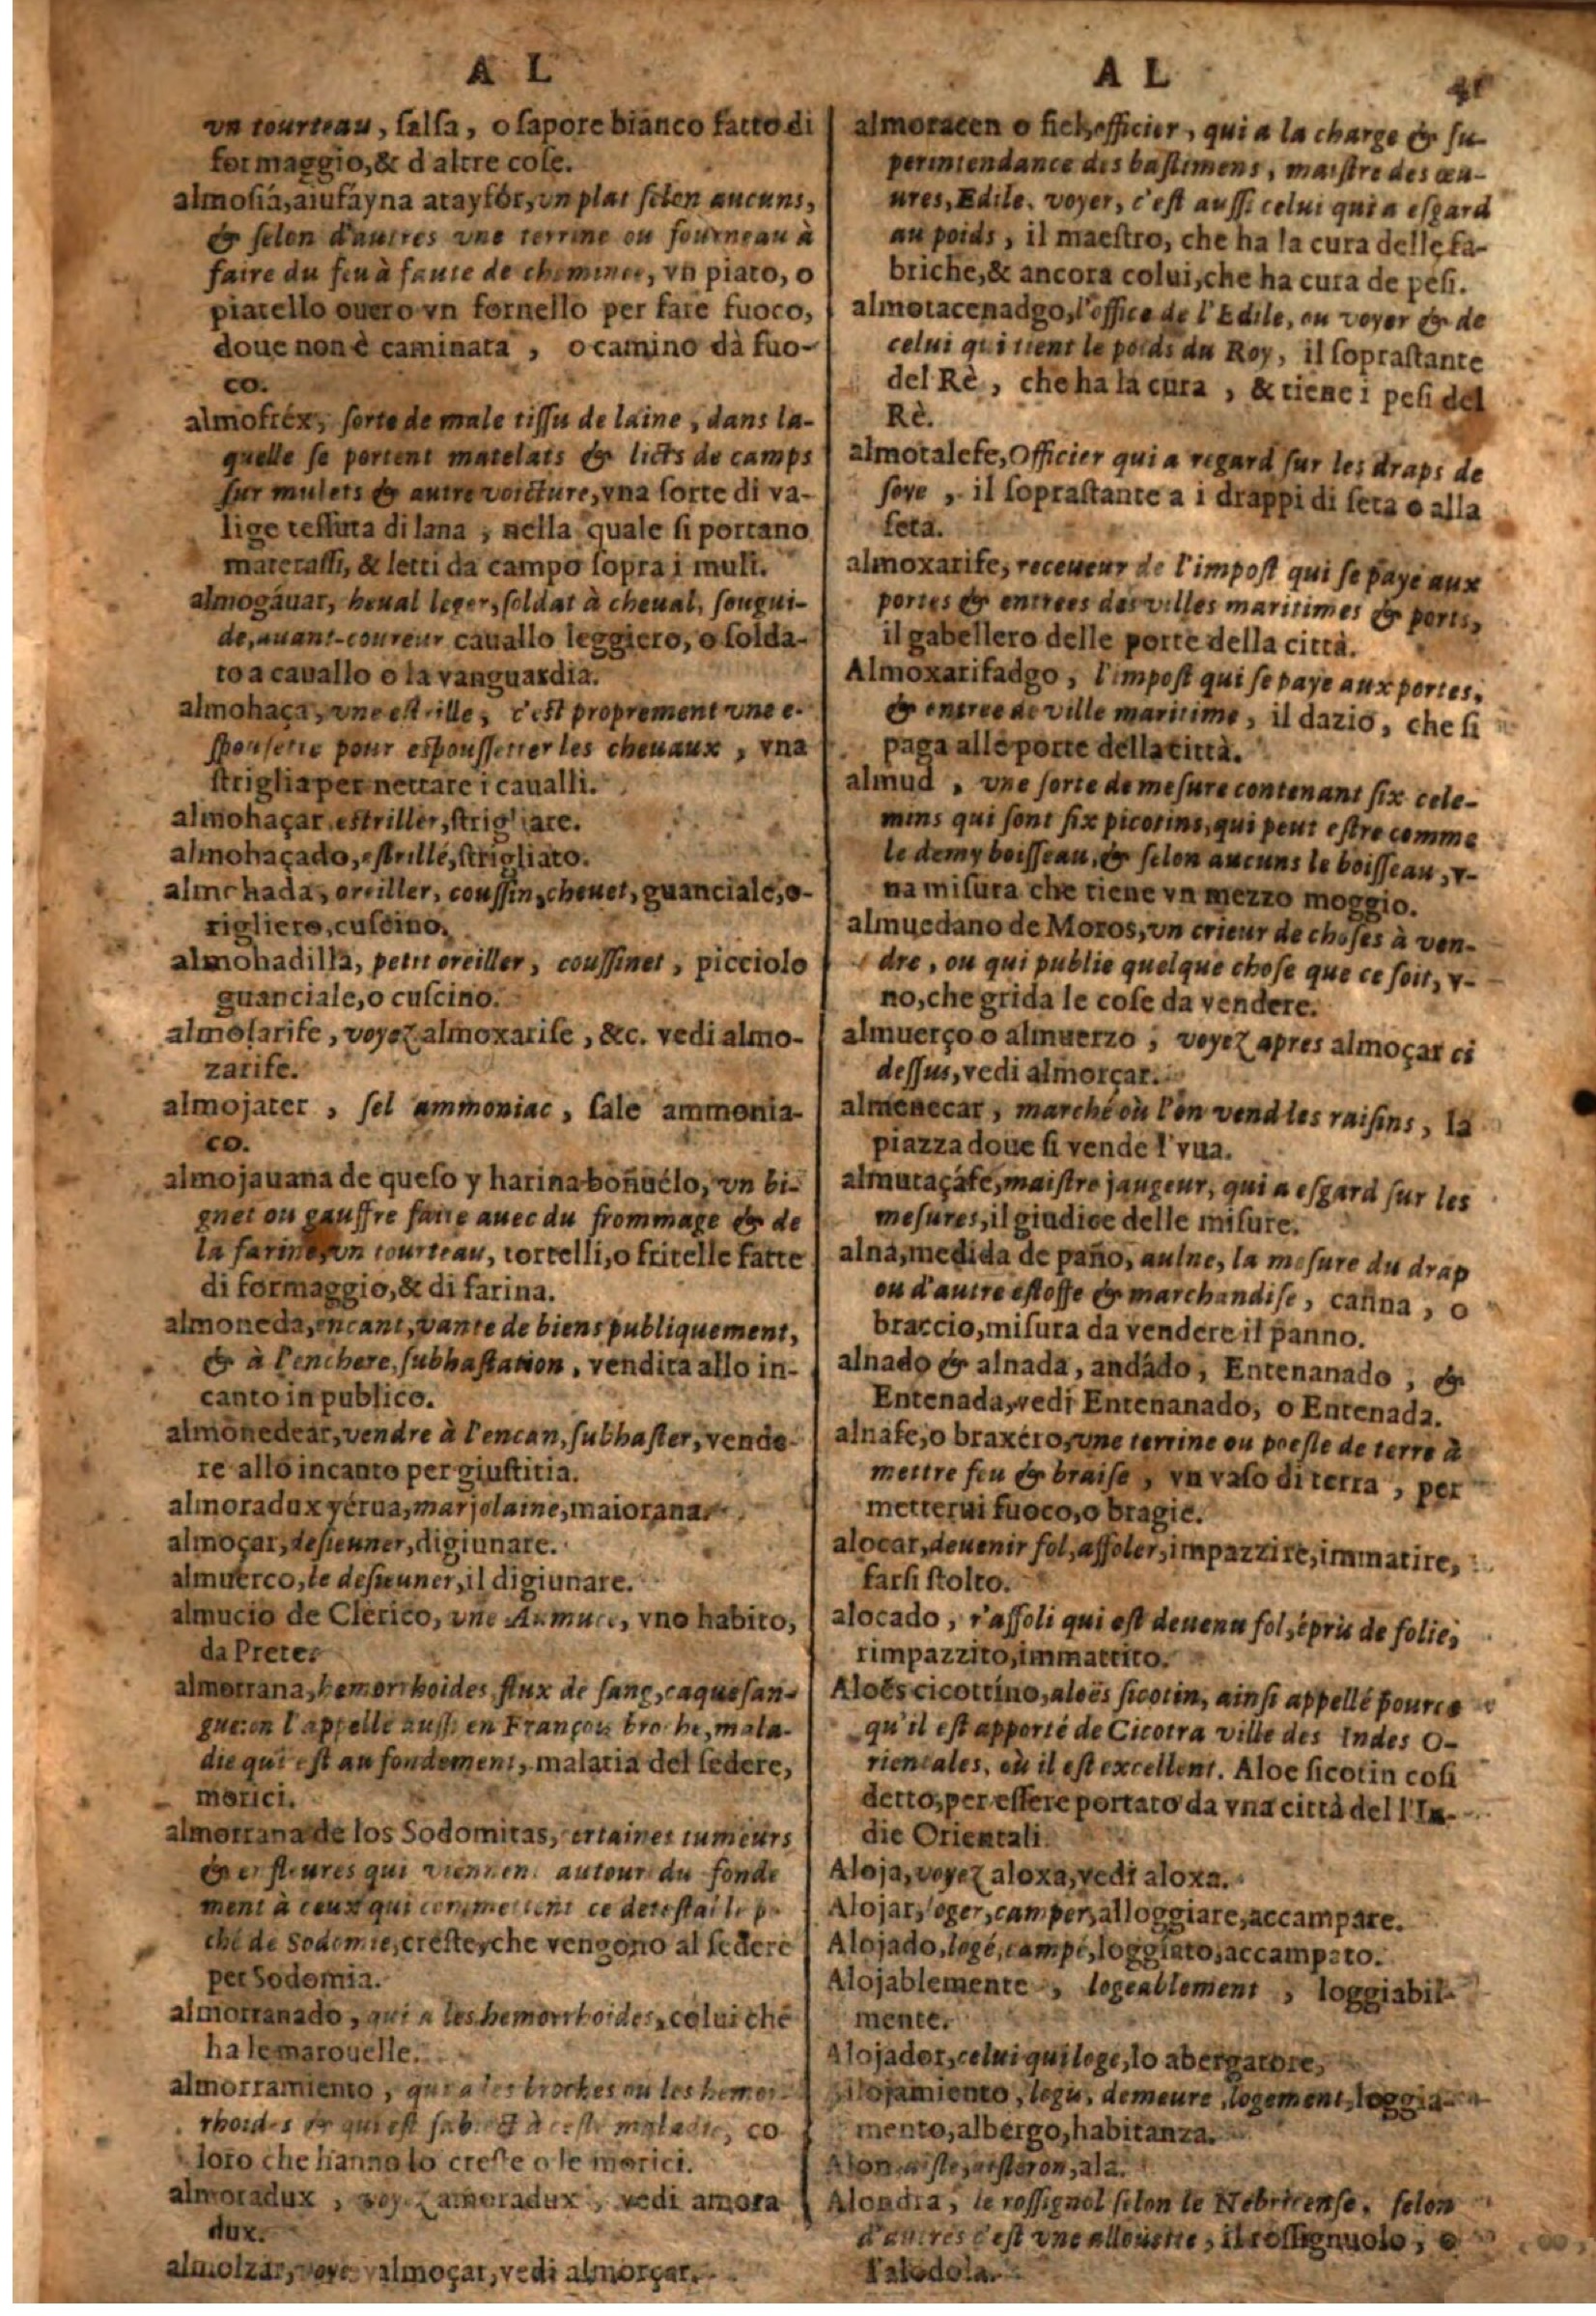 A L
vn tourteau, salsa, o sapore bianco fatto di
formaggio, & d altre cose.
almofiá, aiufáyna atayfór, vn plat selon aucuns,
& selon d'autres vne terrine ou fourneau à
faire du feu à faute de cheminee, vn piato, o
piatello ouero vn fornello per fare fuoco,
doue non è caminata, o camino dà fuo-
co.
almofréx, sorte de male tissu de laine, dans la-
quelle se portent matelats & licts de camps
sur mulets & autre voicture, vna sorte di va-
lige tessuta di lana, nella quale si portano
materassi, & letti da campo sopra i muli.
almogáuar, heual leger, soldat à cheual, sougui-
de, auant-coureur cauallo leggiero, o solda-
to a cauallo o la vanguardia.
almohaça, vne estrille, c'est proprement vne e-
spousette pour espousseter les cheuaux, vna
striglia per nettare i caualli.
almohaçar estriller, strigliare.
almohaçado, estrillé, strigliato.
almohada, oreiller, coussin, cheuet, guanciale, o-
rigliero, cuscino.
almohadilla, petit oreiller, coussinet, picciolo
guanciale, o cuscino.
almosarife, voyez almoxarife, &c. vedi almo-
zarife.
almojater, sel ammoniac, sale ammonia-
co.
almojauana de queso y harina boñuélo, vn bi-
gnet ou gauffre faite auec du frommage & de
la farine, vn tourteau, tortelli, o fritelle fatte
di formaggio, & di farina.
almoneda, encant, vante de biens publiquement,
& à l'enchere, subhastation, vendita allo in-
canto in publico.
almonedear, vendre à l'encan, subhaster, vende-
re allo incanto per giustitia.
almoradux yérua, marjolaine, maiorana.
almoçar, desieuner, digiunare.
almuerco, le desieuner, il digiunare.
almucio de Clerico, vne Aumuce, vno habito,
da Prete.
almorrana, hemorrhoides, flux de sang, caquesan-
gue: on l'appelle aussi en François broche, mala-
die qui est au fondement, malatia del sedere,
morici.
almorrana de los Sodomitas, ertaines tumeurs
& enfleures qui viennent autour du fonde
ment à ceux qui commettent ce detestable p-
ché de Sodomie, creste, che vengono al sedere
per Sodomia.
almorranado, qui a les hemorrhoides, colui che
ha le marouelle.
almorramiento, qui a les broches ou les hemor-
rhoides & qui est subiect à ceste maladie, co
loro che hanno lo creste o le morici.
almoradux, voyez amoradux, vedi amora
dux.
almolzar, voyez almoçar, vedi almorçar.
A L
41
almotacen o fiel, officier, qui a la charge & su-
perintendance des bastimens, maistre des œu-
ures, Edile, voyer, c'est aussi celui qui a esgard
au poids, il maestro, che ha la cura delle fa-
briche, & ancora colui, che ha cura de pesi.
almotacenadgo, l'office de l'Edile, ou voyer & de
celui qui tient le poids du Roy, il soprastante
del Rè, che ha la cura, & tiene i pesi del
Rè.
almotalefe, Officier qui a regard sur les draps de
soye, il soprastante a i drappi di seta o alla
seta.
almoxarife, receueur de l'impost qui se paye aux
portes & entrees des villes maritimes & ports,
il gabellero delle porte della città.
Almoxarifadgo, l'impost qui se paye aux portes,
& entree de ville maritime, il dazio, che si
paga alle porte della città.
almud, vne sorte de mesure contenant six cele-
mins qui sont six picotins, qui peut estre comme
le demy boisseau, & selon aucuns le boisseau, v-
na misura che tiene vn mezzo moggio.
almuedano de Moros, vn crieur de choses à ven-
dre, ou qui publie quelque chose que ce soit, v-
no, che grida le cose da vendere.
almuerço o almuerzo, voyez apres almoçar ci
dessus, vedi almorçar.
almenecar, marché où l'on vend les raisins, la
piazza doue si vende l'vua.
almutaçáfe, maistre jaugeur, qui a esgard sur les
mesures, il giudice delle misure.
alna, medida de paño, aulne, la mesure du drap
ou d'autre estoffe & marchandise, canna, o
braccio, misura da vendere il panno.
alnado & alnada, andádo, Entenanado, &
Entenada, vedi Entenanado, o Entenada.
alnafe, o braxéro, vne terrine ou poesle de terre à
mettre feu & braise, vn vaso di terra, per
metterui fuoco, o bragie.
alocar, deuenir fol, affoler, impazzire, immatire,
farsi stolto.
alocado, r'affoli qui est deuenu fol, épris de folie,
rimpazzito, immattito.
Aloës cicotrino, aloës sicotin, ainsi appellé pource
qu'il est apporté de Cicotra ville des Indes O-
rientales, où il est excellent. Aloe sicotin cosi
detto, per essere portato da vna città del l'In-
die Orientali.
Aloja, voyez aloxa, vedi aloxa.
Alojar, loger, camper, alloggiare, accampare.
Alojado, logé, campé, loggiato, accampato.
Alojablemente, logeablement, loggiabil-
mente.
Alojador, celui qui loge, lo abergatore,
Alojamiento, logis, demeure, logement, loggia-
mento, albergo, habitanza.
Alon, ala.
Alondra, le rossignol selon le Nebricense, selon
d'autres c'est vne allouette, il rossignuolo, o
l'alodola.